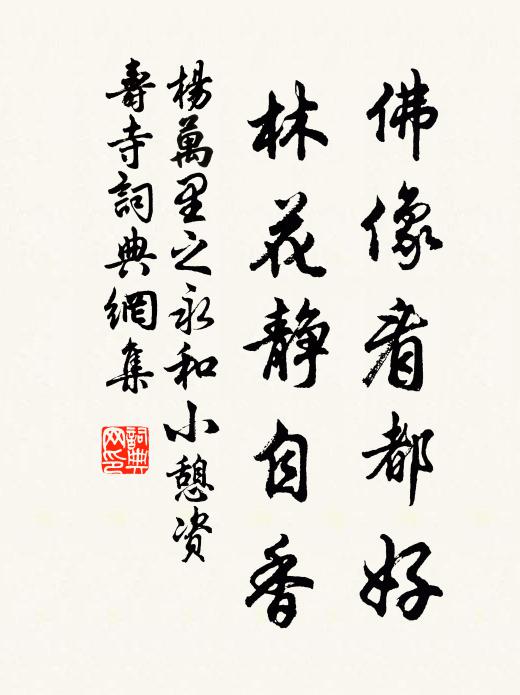 佛像看都好
林花静自香
楊萬里之永和小憩资
壽寺詞典網集
詞典网印